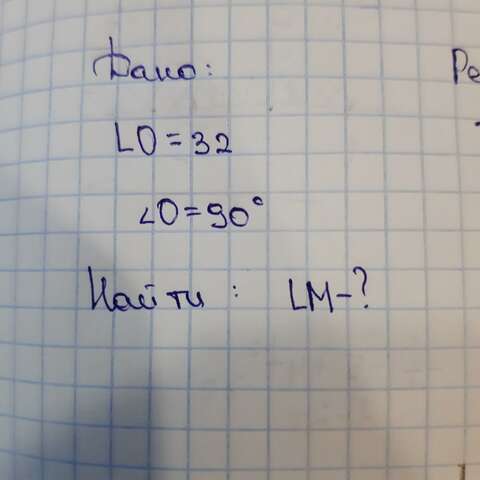 Дано:
Ре
LO=32
∠O=90°
Найти: LM-?